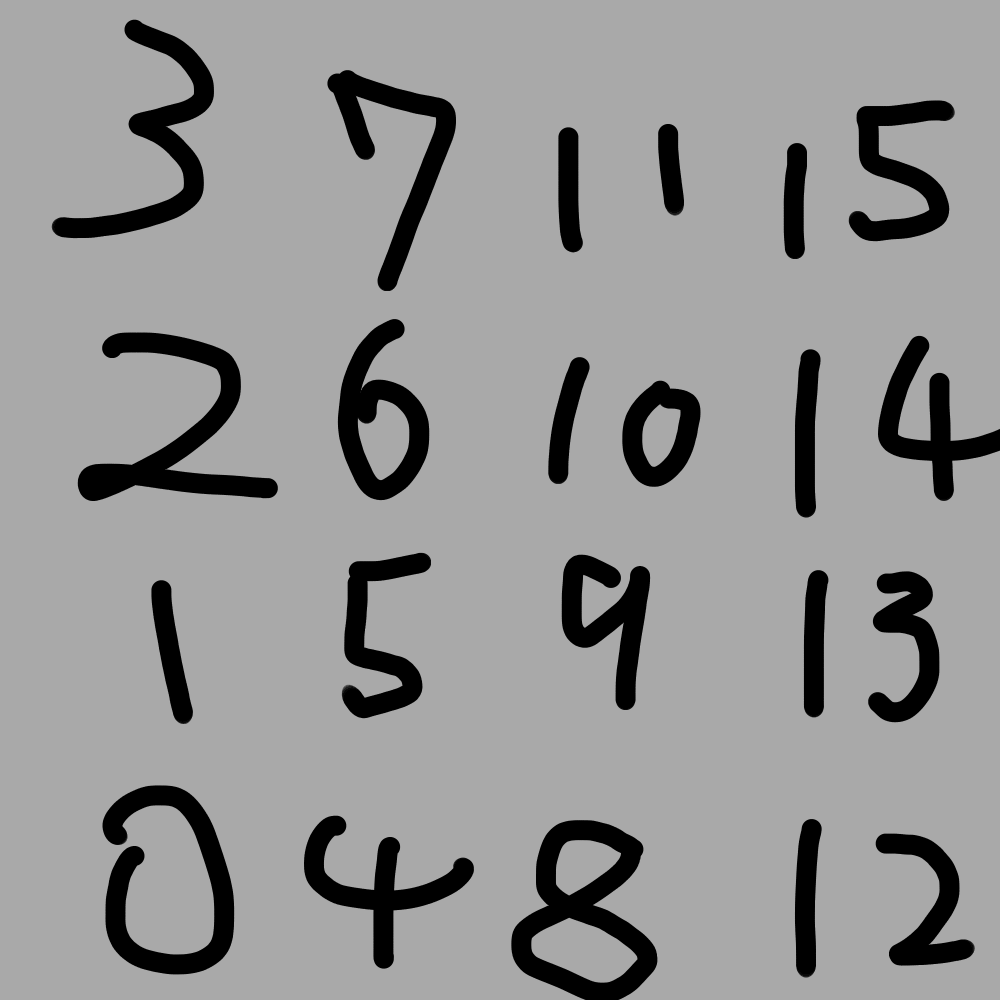 3 7 11 15
2 6 10 14
1 5 9 13
0 4 8 12